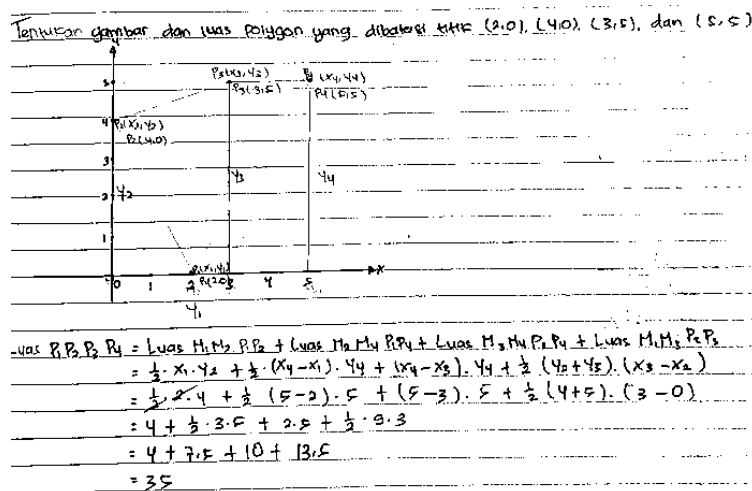 Tentukan gambar dan luas polygon yang dibatasi titik (2,0), (4,0), (3,5), dan (5,5)
5
P3(x3,y3)
P3(3,5)
P4(x4,y4)
P4(5,5)
4
P2(x2,y2)
P2(4,0)
3
Y3
Y4
2
Y2
1
P1(x1,y1)
P1(2,0)
0 1 2 3 4 5
X
Y1
Luas P1P2P3P4 = Luas M1M2 P1P2 + Luas M2M4 P1P4 + Luas M3M4 P2P4 + Luas M1M3 P2P3
= 1/2 . x1 . y2 + 1/2 . (x4 - x1) . y4 + (x4 - x3) . y4 + 1/2 (y2 + y3) . (x3 - x2)
= 1/2 . 2 . 4 + 1/2 (5-2) . 5 + (5-3) . 5 + 1/2 (4+5) . (3-0)
= 4 + 1/2 . 3.5 + 2.5 + 1/2 . 9.3
= 4 + 7,5 + 10 + 13,5
= 35